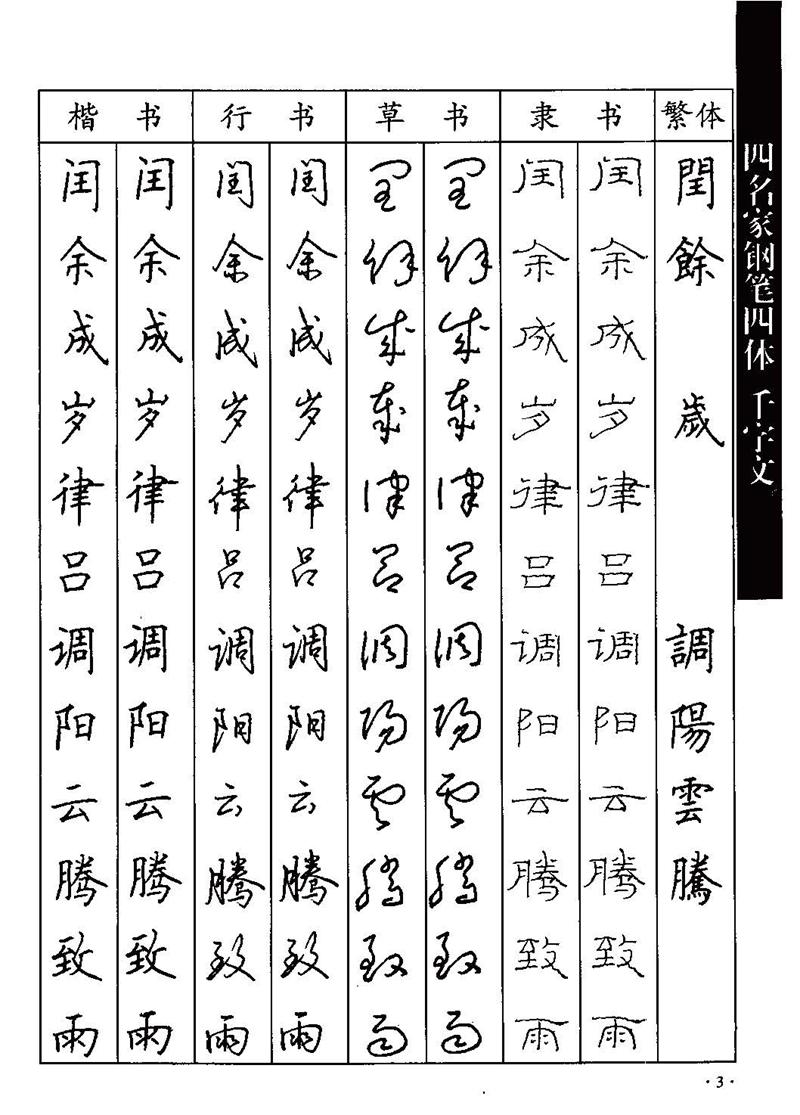 四名家钢笔四体 千字文
楷书 行书 草书 隶书 繁体
闰 闰 闰 闰 闰 闰 闰 闰 閏
余 余 余 余 余 余 余 余 餘
成 成 成 成 成 成 成 成
岁 岁 岁 岁 岁 岁 岁 岁 歲
律 律 律 律 律 律 律 律
吕 吕 吕 吕 吕 吕 吕 吕
调 调 调 调 调 调 调 调 調
阳 阳 阳 阳 阳 阳 阳 阳 陽
云 云 云 云 云 云 云 云 雲
腾 腾 腾 腾 腾 腾 腾 腾 騰
致 致 致 致 致 致 致 致
雨 雨 雨 雨 雨 雨 雨 雨
·3·